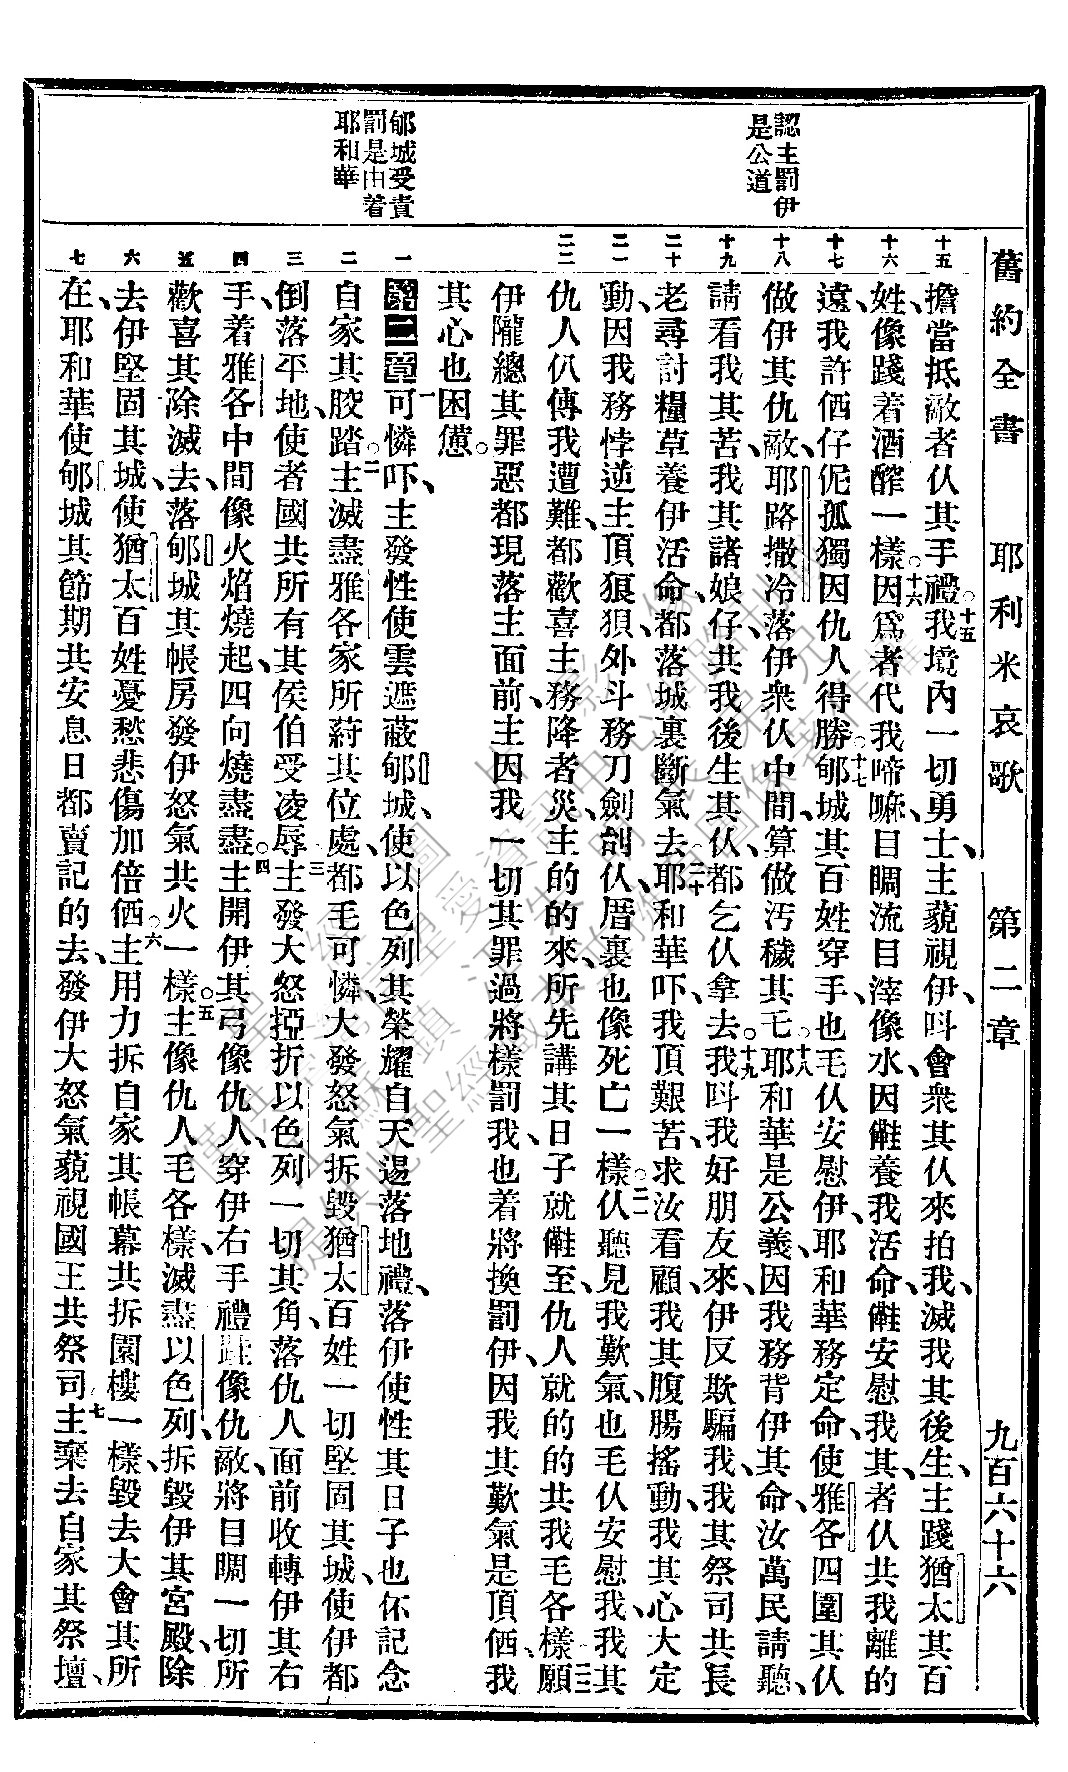 舊約全書　耶利米哀歌　第二章　九百六十六
認主罰伊
是公道
郇城受責
罰是由着
耶和華
十五
十六
十七
十八
十九
二十
二一
二二
一
二
三
四
五
六
七
擔當抵敵者仈其手禮。十五我境內一切勇士、主藐視伊、呌會衆其仈來拍我、滅我其後生、主踐猶太其百
姓、像踐着酒醡一樣。十六因爲者代我啼嘛、目睭流目滓像水、因𣍐養我活命、𣍐安慰我其、者仈共我離的
遠、我許仴仔伲孤獨、因仇人得勝。十七郇城其百姓穿手、也毛仈安慰伊、耶和華務定命、使雅各四圍其仈
做伊其仇敵、耶路撒冷落伊衆仈中間、算做汚穢其乇。十八耶和華是公義、因我務背伊其命、汝萬民請聽、
請看我其苦、我其諸娘仔、共我後生其仈、都乞仈拿去。十九我呌我好朋友來、伊反欺騙我、我其祭司共長
老尋討糧草養伊活命、都落城裏斷氣去。二十耶和華吓、我頂艱苦、求汝看顧、我其腹腸搖動、我其心大定
動、因我務悖逆主、頂狼狽、外斗務刀劍刣仈、厝裏也像死亡一樣。二一仈聽見我歎氣、也毛仈安慰我、我其
仇人仈傳我遭難、都歡喜主務降者災、主的的來、所先講其日子就𣍐至、仇人就的的共我毛各樣。二二願
伊隴總其罪惡都現落主面前、主因我一切其罪過將樣罰我、也着將換罰伊、因我其歎氣是頂仴、我
其心也困憊。
第二章一可憐吓、主發性使雲遮蔽郇城、使以色列其榮耀自天逿落地禮、落伊使性其日子也伓記念
自家其骹踏。二主滅盡雅各家所蒔其位處、都毛可憐、大發怒氣拆毀猶太百姓一切堅固其城、使伊都
倒落平地、使者國共所有其侯伯受凌辱。三主發大怒、挜折以色列一切其角、落仇人面前收轉伊其右
手、着雅各中間像火焰燒起、四向燒盡盡。四主開伊其弓像仇人、穿伊右手禮𨂿像仇敵、將目睭一切所
歡喜其除滅去、落郇城其帳房發伊怒氣共火一樣。五主像仇人毛各樣、滅盡以色列、拆毀伊其宮殿、除
去伊堅固其城、使猶太百姓憂愁悲傷加倍仴。六主用力拆自家其帳幕、共拆園樓一樣、毀去大會其所
在、耶和華使郇城其節期共安息日都賣記的去、發伊大怒氣藐視國王共祭司。七主棄去自家其祭壇、